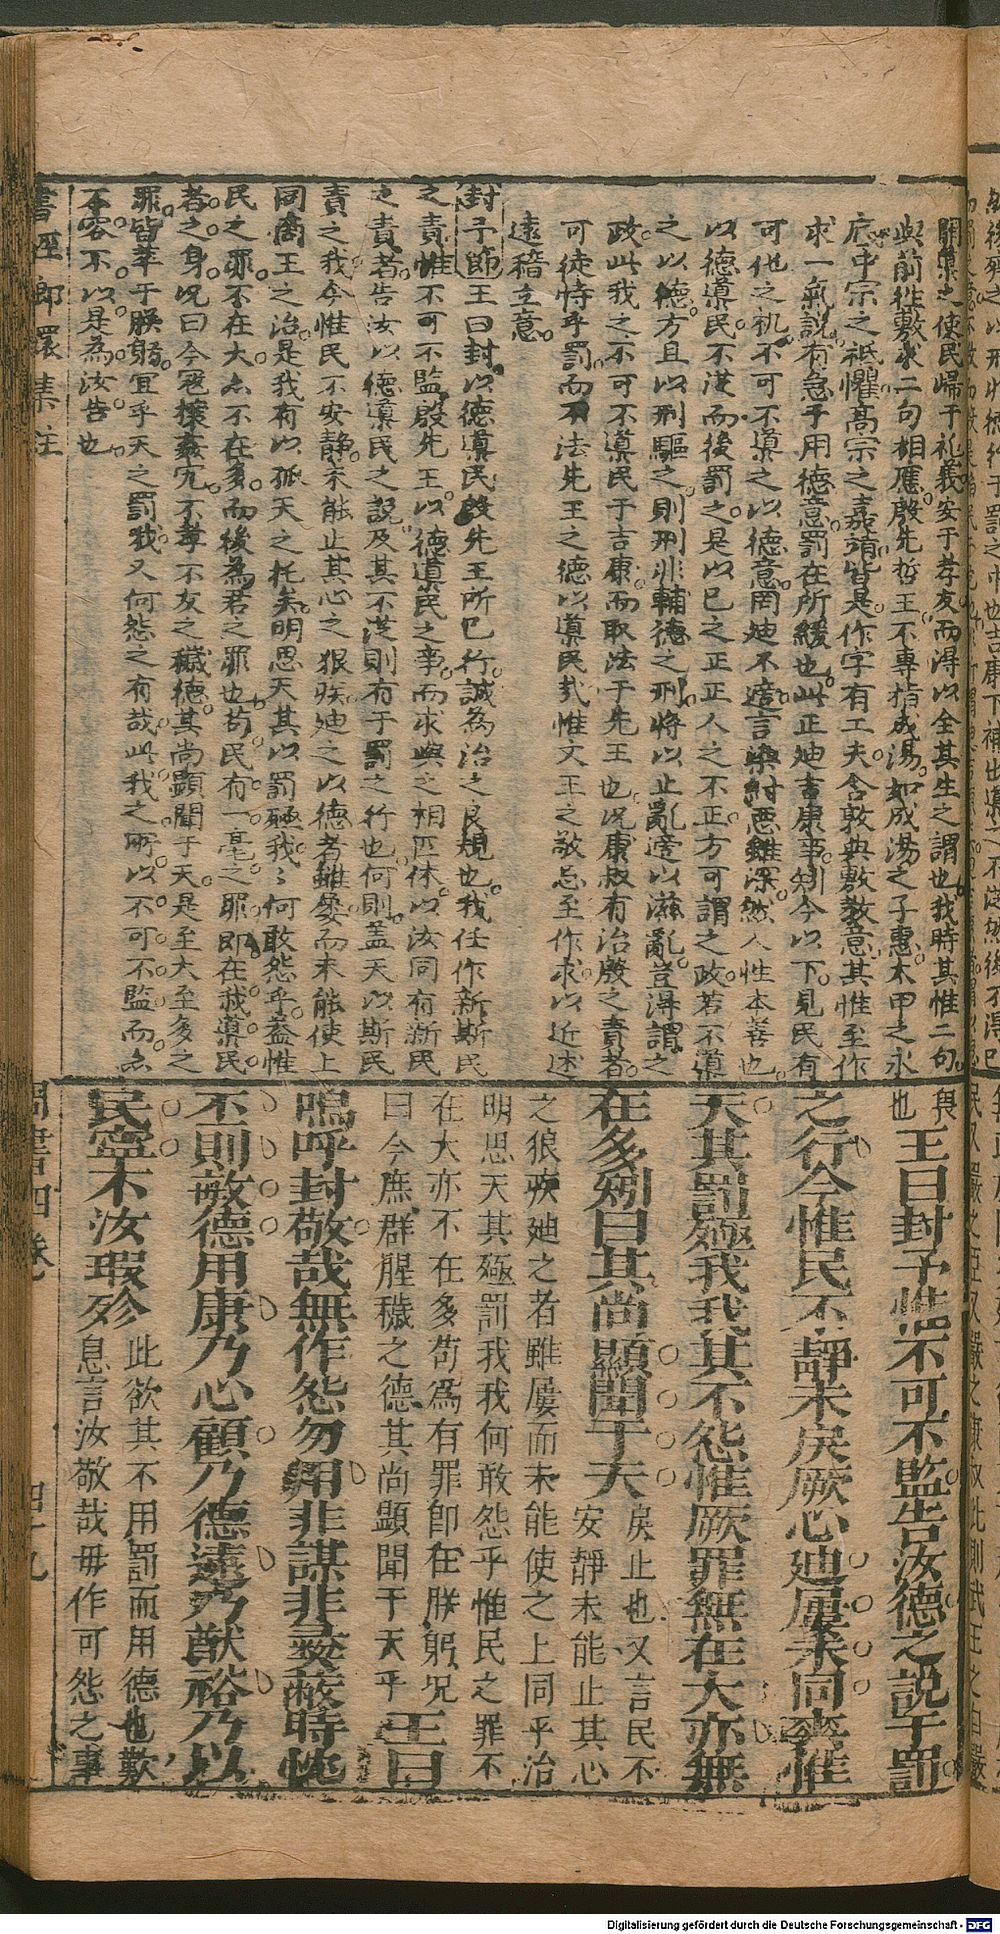 開導之使民歸于礼義安于孝友而得以全其生之謂也我時其惟二句
與前徃敷求二句相應殷先哲王不專指成湯如成湯之子惠太甲之永
底中宗之祗懼高宗之嘉靖皆是作字有工夫含敦典敷教意其惟至作
求一氣說有急于用德意罰在所緩也此正迪吉康事矧今以下見民有
可化之机不可不導之以德意罔迪不適言桀紂惡雖深然人性本善也
以德導民不從而後罰之是以已之正正人之不正方可謂之政若不導
之以德方且以刑驅之則刑非輔德之刑將以止亂適以滋亂豈得謂之
政此我之不可不導民于吉康而取法于先王也况康叔有治殷之責者
可徒恃乎罰而不法先王之德以導民哉惟文王之敬忌至作求以近述
遠稽立意
封予節王曰封以德導民殷先王所已行誠為治之良規也我任作新斯民
之責惟不可不監殷先王以德導民之事而求與之相匹休以汝同有新民
之責者告汝以德導民之說及其不從則有于罰之行也何則盖天以斯民
責之我今惟民不安靜未能止其心之狠疾迪之以德者雖屢而未能使上
同商王之治是我有以孤天之托矣明思天其以罰殛我〻何敢怨乎盖惟
民之罪不在大亦不在多而後為君之罪也苟民有一毫之罪即在我導民
者之身况曰今寇攘姦宄不孝不友之穢德其尚顯聞于天是至大至多之
罪皆萃于朕躬宜乎天之罰我又何怨之有哉此我之所以不可不監而亦
不容不以是為汝告也
與
也
王曰封予惟不可不監告汝德之說于罰
之行今惟民不靜未戾厥心迪屢未同爽惟
天其罰殛我我其不怨惟厥罪無在大亦無
在多矧曰其尚顯聞于天
戾止也又言民不
安靜未能止其心
之狠疾迪之者雖屢而未能使之上同乎治
明思天其殛罰我我何敢怨乎惟民之罪不
在大亦不在多苟為有罪即在朕躬况
曰今庶群腥穢之德其尚顯聞于天乎
王曰
嗚呼封敬哉無作怨勿用非謀非彝蔽時忱
丕則敏德用康乃心顧乃德遠乃猷裕乃以
民寧不汝瑕殄
此欲其不用罰而用德也歎
息言汝敬哉毋作可怨之事
書經郎環集註
周書四卷
四十九
Digitalisierung gefördert durch die Deutsche Forschungsgemeinschaft - DFG